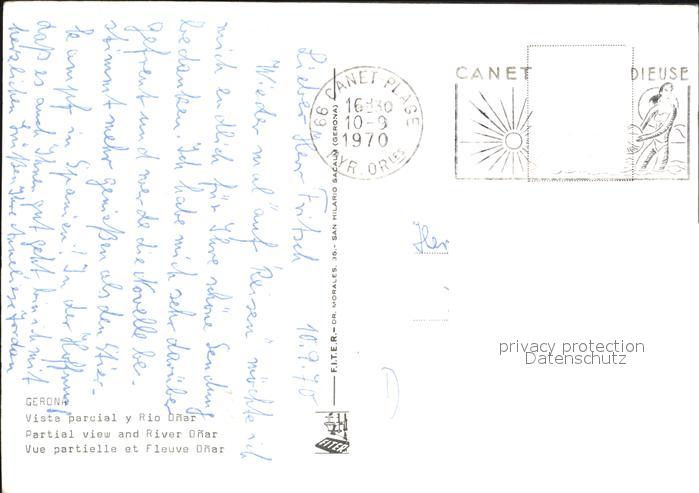 Lieber Herr Fritsch
10.9.70
"Wieder mal" auf Reisen möchte ich
mich endlich für Ihre schöne Sendung
bedanken. Ich habe mich sehr darüber
gefreut und werde die Novelle be-
stimmt mehr genießen als den Stier-
kampf in Spanien! In der Hoffnung
daß es auch Ihnen gut geht bin ich mit
herzlichen Grüßen Ihre Anneliese
GERONA
Vista parcial y Rio Oñar
Partial view and River Oñar
Vue partielle et Fleuve Oñar
F.I.T.E.R. - DR. MORALES, 35. - SAN HILARIO SACALM (GERONA)
66 CANET-PLAGE
16H30
10-9
1970
PYR. ORles
CANET
DIEUSE
Her
privacy protection
Datenschutz